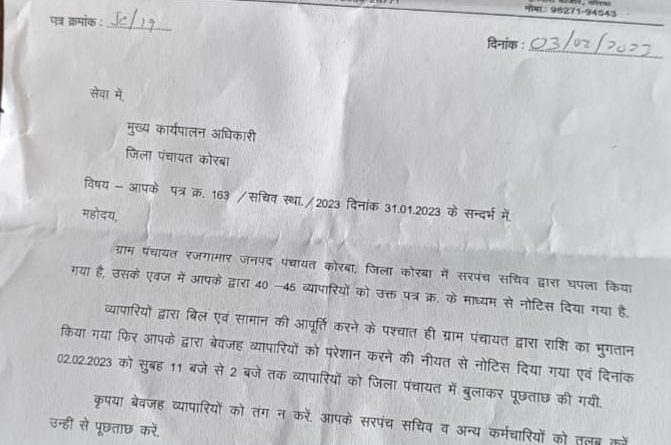 मोबा.: 95271-94543
पत्र क्रमांक : Jc/19
दिनांक : 03/02/2023
सेवा में,
मुख्य कार्यपालन अधिकारी
जिला पंचायत कोरबा
विषय – आपके पत्र क्र. 163 /सचिव स्था./2023 दिनांक 31.01.2023 के सन्दर्भ में.
महोदय,
ग्राम पंचायत रजगामार जनपद पंचायत कोरबा, जिला कोरबा में सरपंच सचिव द्वारा घपला किया
गया है, उसके एवज में आपके द्वारा 40 –45 व्यापारियों को उक्त पत्र क्र. के माध्यम से नोटिस दिया गया है.
व्यापारियों द्वारा बिल एवं सामान की आपूर्ति करने के पश्चात ही ग्राम पंचायत द्वारा राशि का भुगतान
किया गया फिर आपके द्वारा बेवजह व्यापारियों को परेशान करने की नीयत से नोटिस दिया गया एवं दिनांक
02.02.2023 को सुबह 11 बजे से 2 बजे तक व्यापारियों को जिला पंचायत में बुलाकर पूछताछ की गयी.
कृपया बेवजह व्यापारियों को तंग न करें. आपके सरपंच सचिव व अन्य कर्मचारियों को तलब करें
उन्हीं से पूछताछ करें.